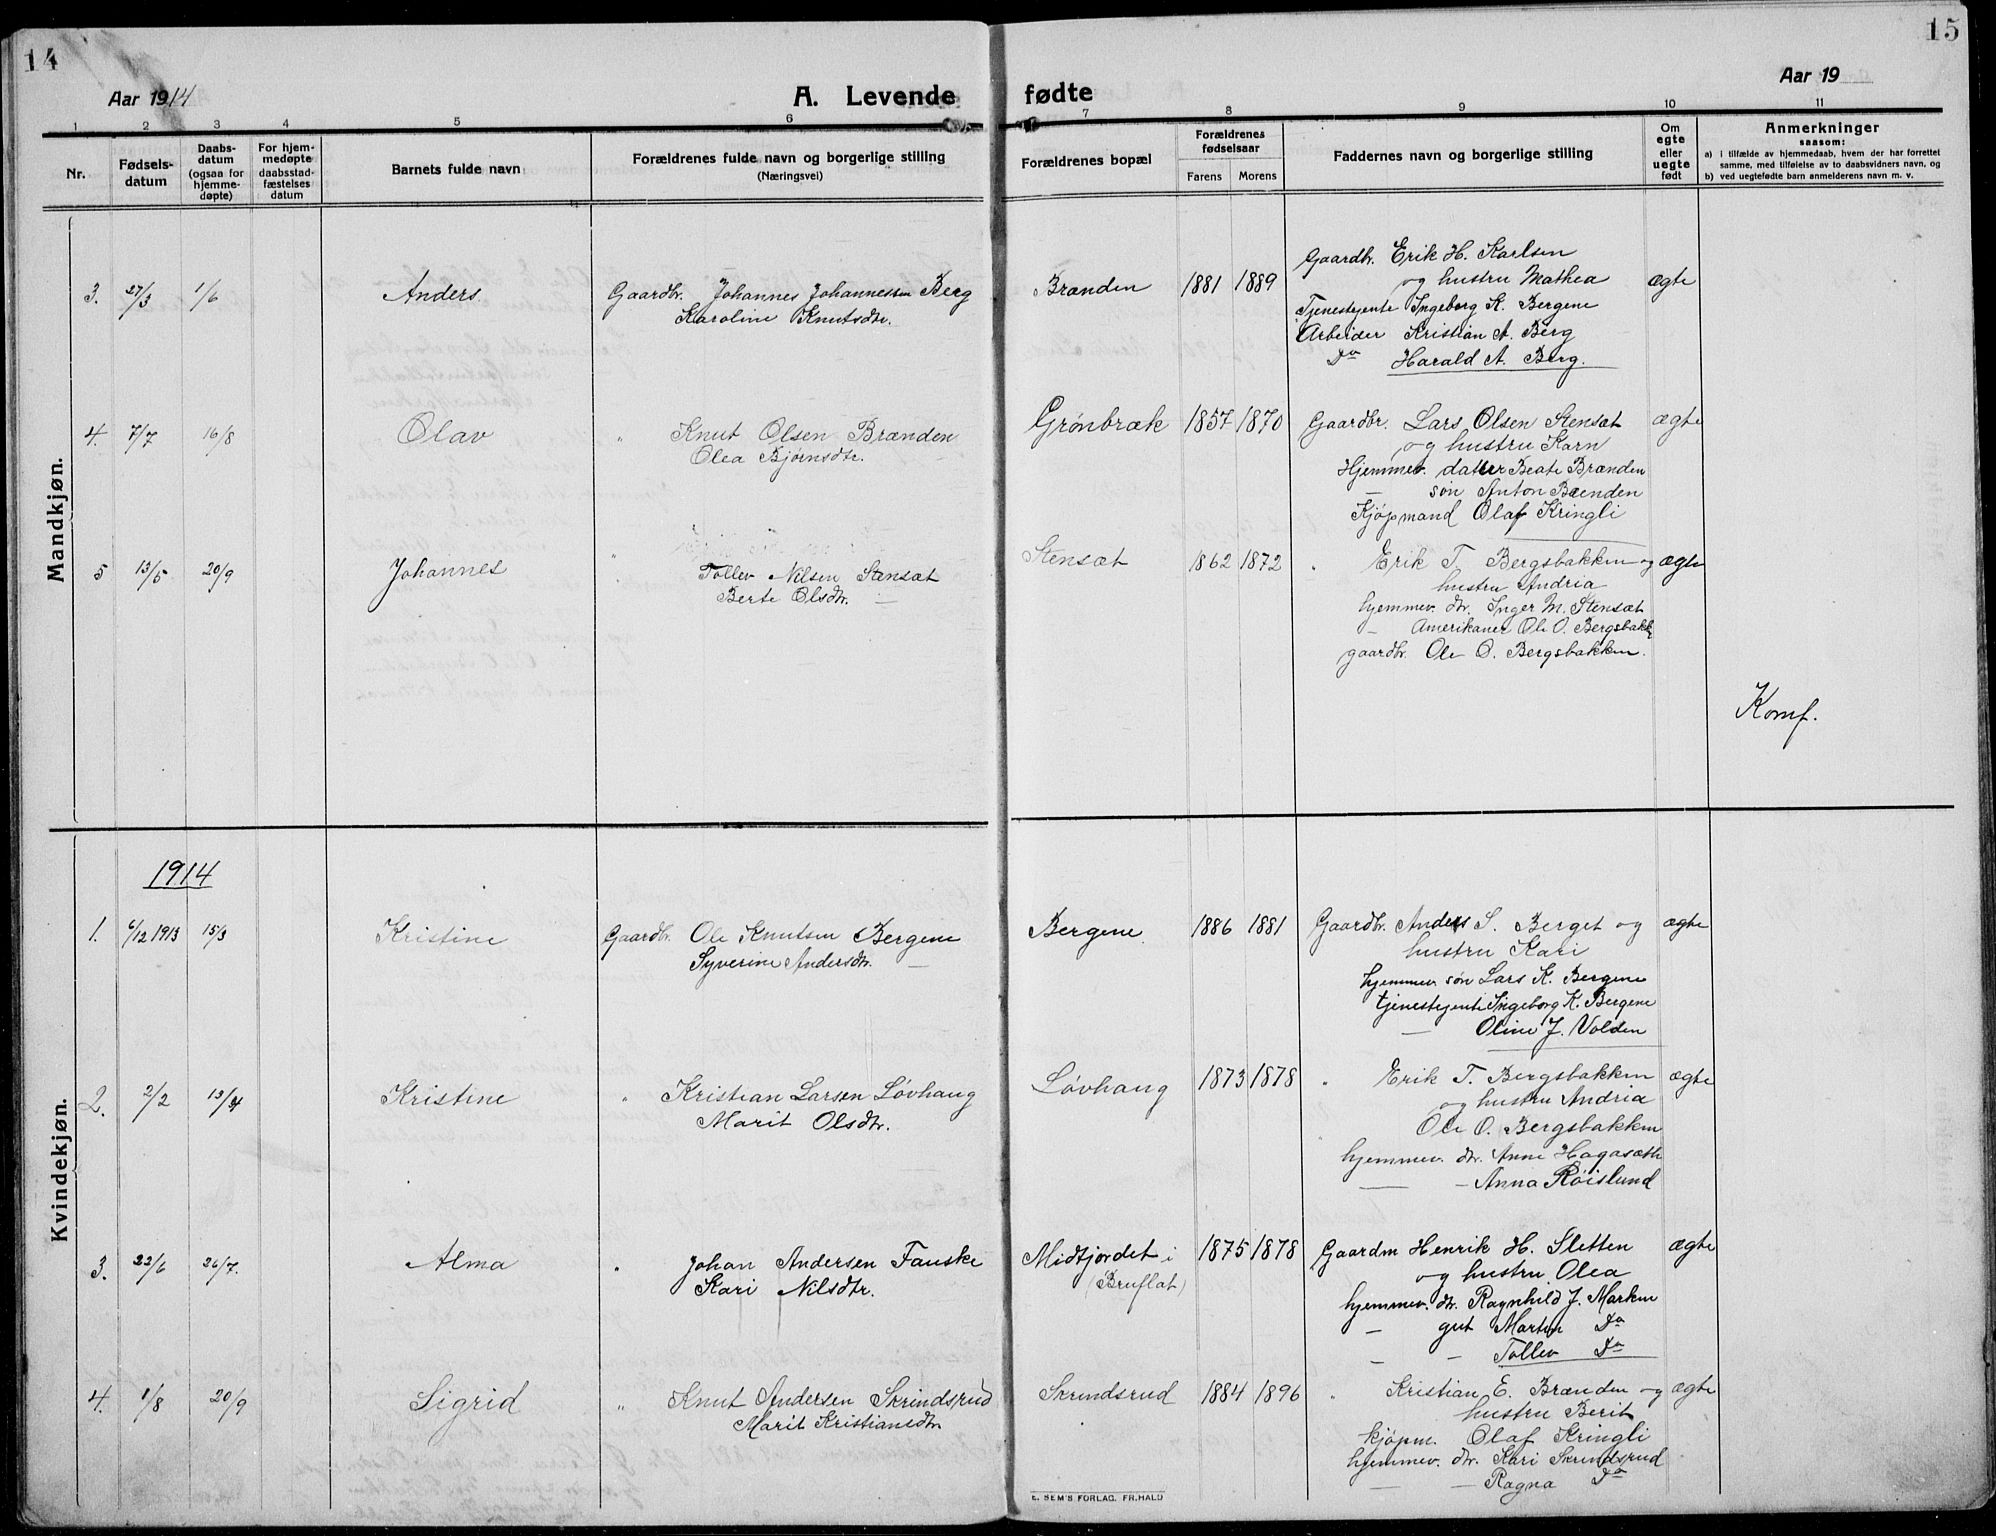 14
15
Aar 1914
A. Levende fødte
Aar 19
1 2 3 4 5 6 7 8 9 10 11
Nr.
Fødsels-
datum
Daabs-
datum
(ogsaa for
hjemme-
døpte)
For hjem-
medøpte
daabsstad-
fæstelses
datum
Barnets fulde navn
Forældrenes fulde navn og borgerlige stilling
(Næringsvei)
Forældrenes bopæl
Forældrenes
fødselsaar
Farens Morens
Faddernes navn og borgerlige stilling
Om
egte
eller
uegte
født
Anmerkninger
saasom:
a) i tilfælde av hjemmedaab, hvem der har forrettet
samme, med tilføielse av to daabsvidners navn, og
b) ved uegtefødte barn anmelderens navn m. v.
Mandkjøn.
3. 27/3 1/6 Anders Gaardbr. Johannes Johannessen Berg
Karoline Knutsdtr.
Brænden 1881 1889 Gaardbr. Erik H. Karlsen ægte
og hustru Mathea
Tjenestejente Ingeborg K. Bergene
Arbeider Kristian A. Berg
Do Harald A. Berg.
4. 7/7 16/8 Olav " Knut Olsen Brænden
Olea Bjørnsdtr.
Grønbræk 1857 1870 Gaardbr. Lars Olsen Stensæt ægte
og hustru Karn
Hjemmev. datter Beate Brænden
— søn Anton Brænden
Kjøpmand Olaf Kringli
5 13/5 20/9 Johannes " Tollev Nilsen Stensæt
Berte Olsdtr. —
Stensæt 1862 1872 " Erik T. Bergsbakken og ægte
hustru Andria
hjemmev. dtr. Inger M. Stensæt
— Amerikaner Ole O. Bergsbakk
gaardbr. Ole O. Bergsbakken.
Konf.
Kvindekjøn.
1914
1. 6/12 1913 15/3 Kristine Gaardbr. Ole Knutsen Bergene
Syverine Andersdtr. —
Bergene 1886 1881 Gaardbr. Anders S. Berget og ægte
hustru Kari
hjemmev søn Lars K. Bergene
tjenestejente Ingeborg K. Bergene
— Oline J. Volden
2. 2/2 13/4 Kristine " Kristian Larsen Løvhaug
Marit Olsdtr.
Løvhaug 1873 1878 " Erik T. Bergsbakken ægte
og hustru Andria
" Ole O. Bergsbakken
hjemmev. dtr. Anne Hagasæth
— — Anna Røislund
3. 22/6 26/7. Alma " Johan Andersen Fauske
Kari Nilsdtr.
Midtjordet i
(Bruflat)
1875 1878 Gaardm Henrik H. Sletten ægte
og hustru Olea
hjemmev. dtr. Ragnhild J. Marken
— gut Martin Do
— — Tollev Do
4. 1/8 20/9 Sigrid " Knut Andersen Skrindsrud
Marit Kristiansdtr.
Skrindsrud 1884 1896 " Kristian E. Brænden og ægte
hustru Berit
kjøpm. Olaf Kringli
hjemmev. dtr. Kari Skrindsrud
— — Ragna Do
E. SEM'S FORLAG. FR.HALD